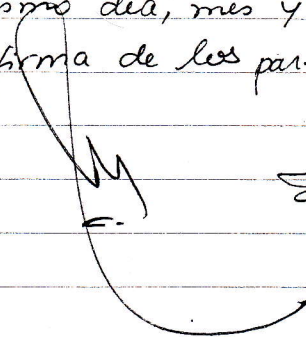 smo dia, mes y
firma de los par